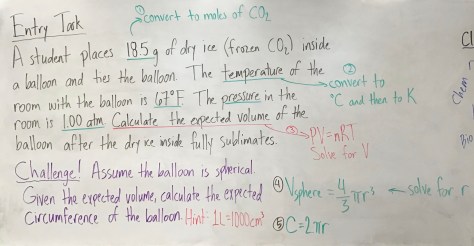 Entry Task
① convert to moles of CO₂
A student places 18.5 g of dry ice (frozen CO₂) inside
a balloon and ties the balloon. The temperature of the
② convert to °C and then to K
room with the balloon is 67°F The pressure in the
room is 1.00 atm. Calculate the expected volume of the
balloon after the dry ice inside fully sublimates.
③ PV=nRT
Solve for V
Challenge! Assume the balloon is spherical.
Given the expected volume, calculate the expected
Circumference of the balloon. Hint: 1L=1000cm³
④ Vsphere = 4/3 πr³ ← solve for r
⑤ C=2πr
Cl
Chem
Bio